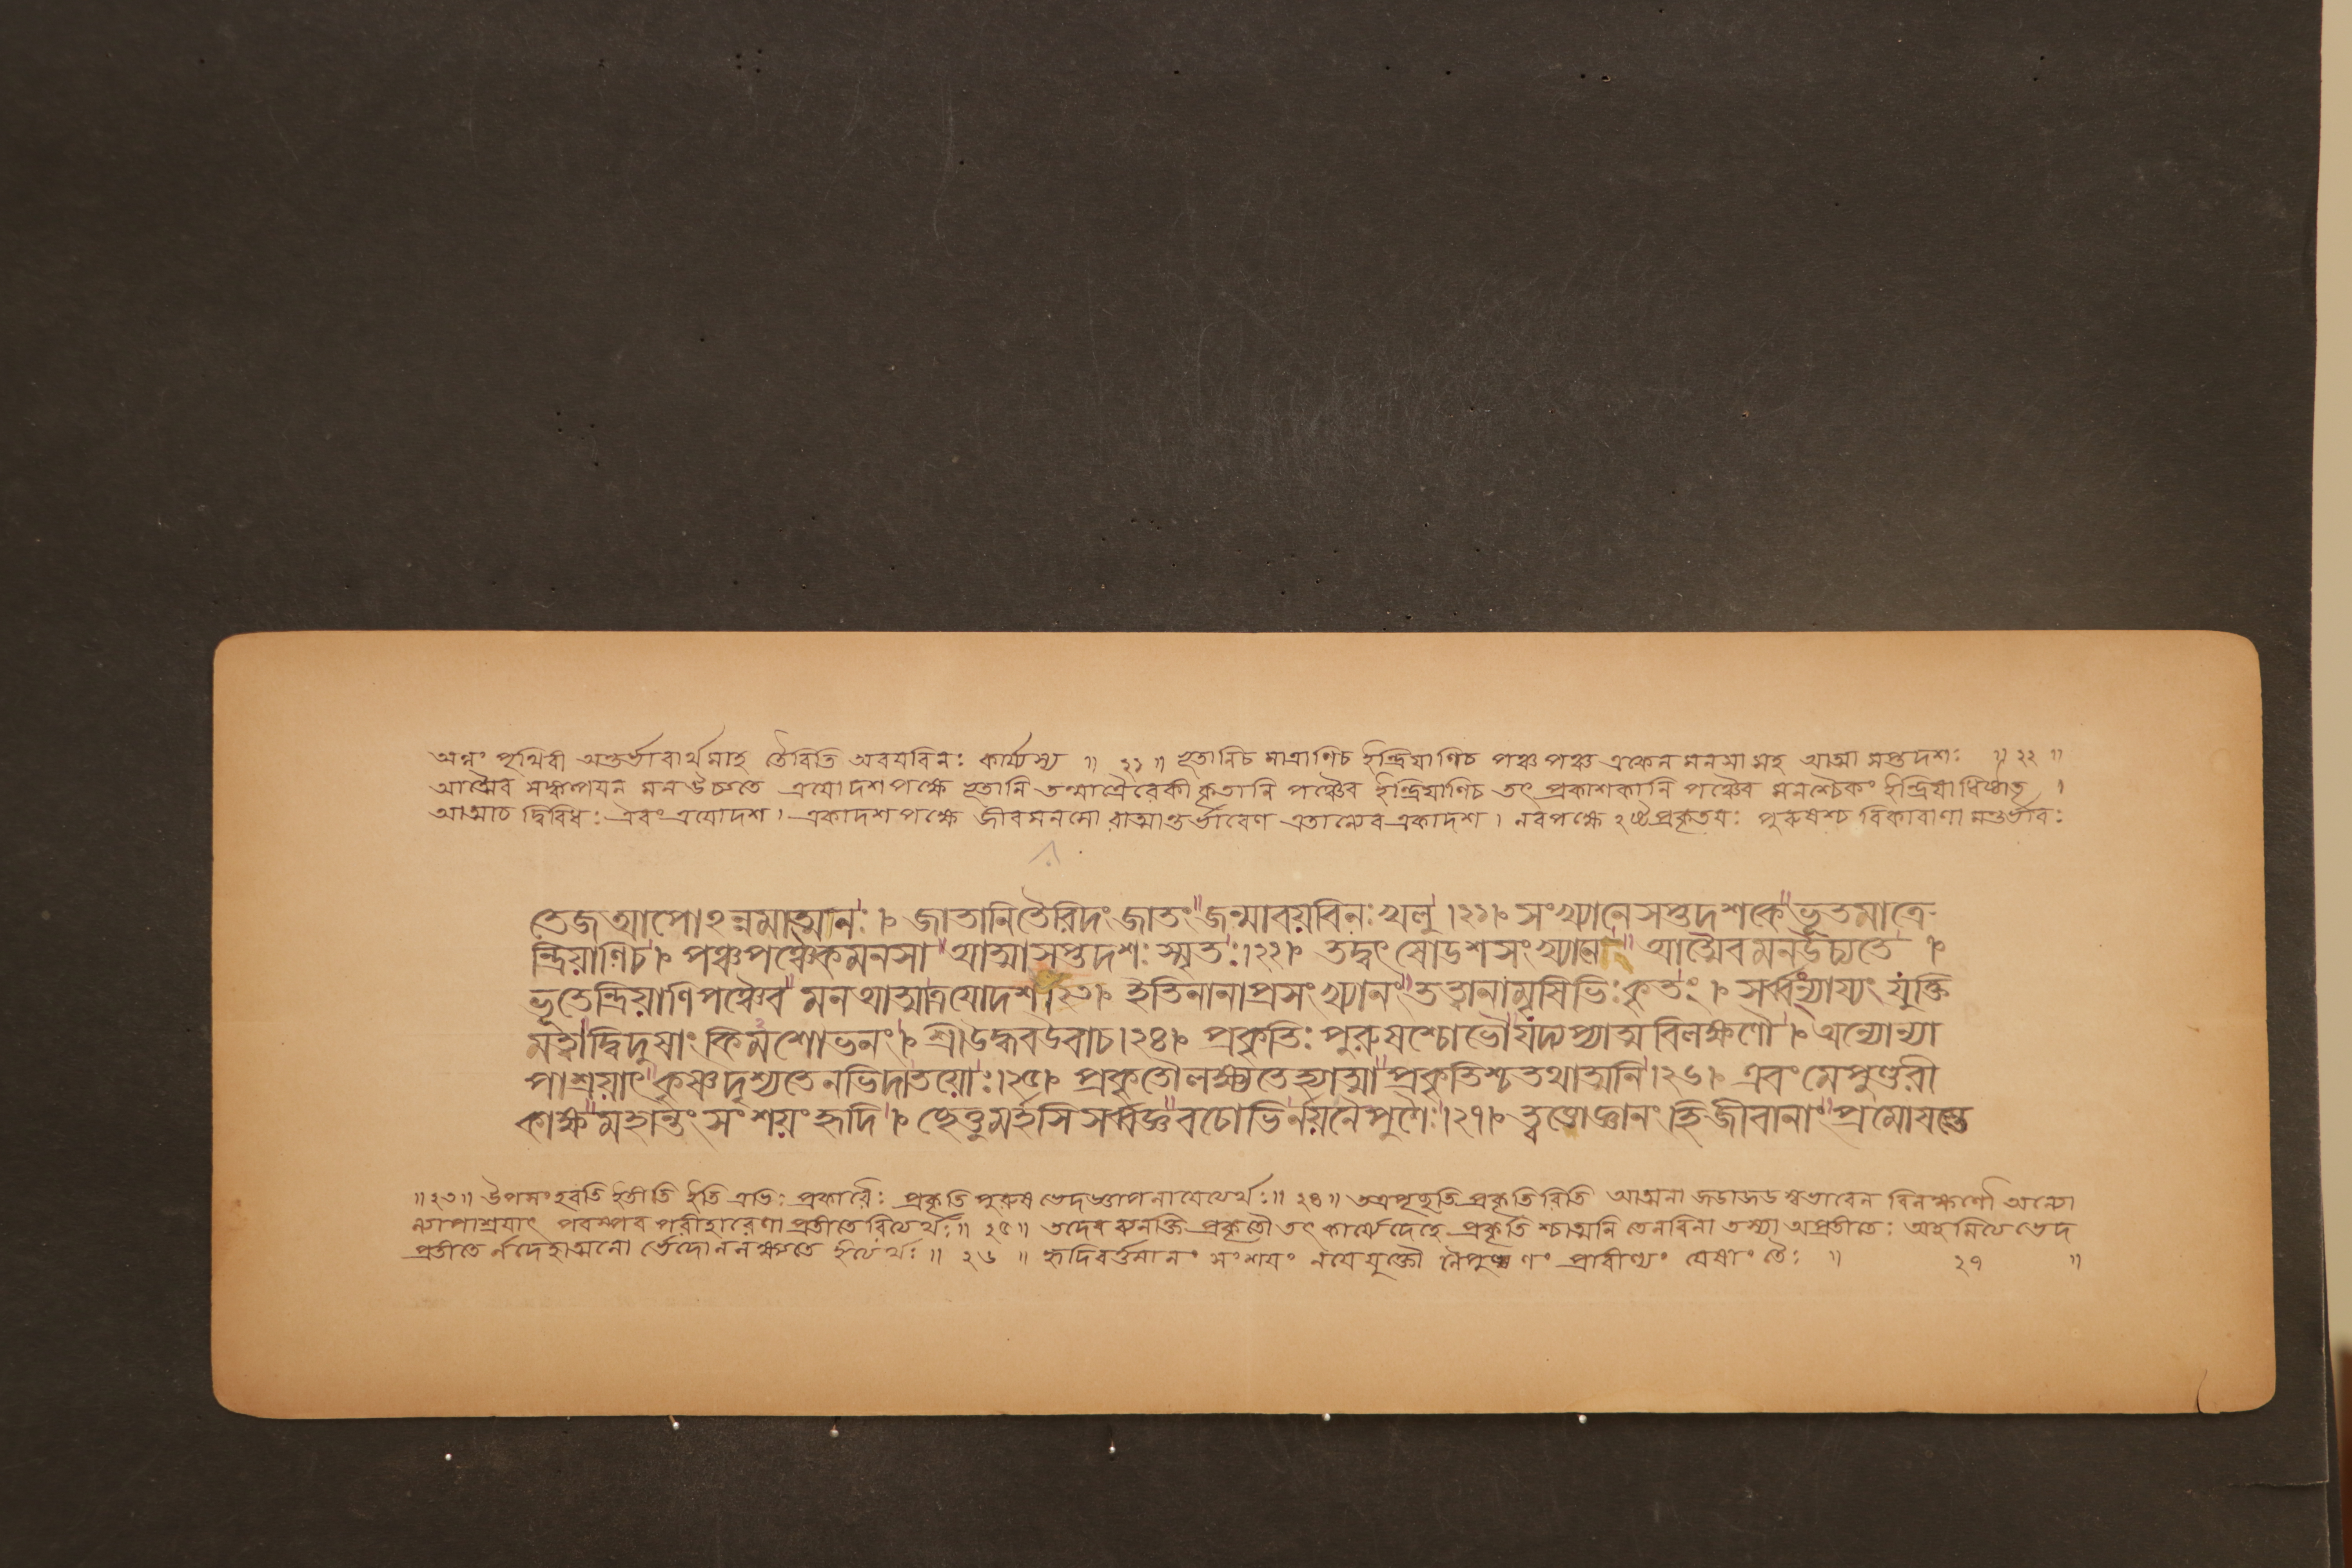 অন্নং পৃথিবী অন্তর্ভাবার্থমাহ তৈরিতি অবযবিনঃ কার্য্যস্য ॥ ২১ ॥ ভূতানিচ মাত্রাণিচ ইন্দ্রিযাণিচ পঞ্চ পঞ্চ একেন মনসা সহ আত্মা সপ্তদশঃ ॥ ২২ ॥
আত্মৈব সঙ্কল্পযন মন উচ্যতে ত্রযোদশ পক্ষে ভূতানি তন্মাত্রৈরেকীকৃতানি পঞ্চৈব ইন্দ্রিযাণিচ তৎ প্রকাশকানি পঞ্চৈব মনশ্চৈকং ইন্দ্রিযাধিষ্ঠাতৃ ।
আত্মাচ দ্বিবিধঃ এবং ত্রযোদশ । একাদশ পক্ষে জীবমনসো রাত্মান্তর্ভাবেণ এতান্যেব একাদশ । নবপক্ষে প্রকৃতযঃ পুরুষশ্চ বিকারাণামন্তর্ভাবঃ
তেজ আপোঽন্নমাত্মানঃ ।০ জাতানিতৈরিদং জাতং জন্মাবয়বিনঃ খলু ।২১।০ সংখ্যানেসপ্তদশকে ভূতমাত্রে-
ন্দ্রিয়াণিচ।০ পঞ্চপঞ্চৈকমনসা আত্মাসপ্তদশঃ স্মৃতঃ।২২।০ তদ্বৎ ষোডশসংখ্যানে আত্মৈবমনউচ্যতে ।০
ভূতেন্দ্রিয়াণিপঞ্চৈব মনআত্মাত্রযোদশ।২৩।০ ইতিনানাপ্রসংখ্যানং তত্বানামৃষিভিঃকৃতং ।০ সর্ব্বংন্যায্যং যুক্তি
মত্বাদ্বিদুষাং কিমশোভনং।০ শ্রীউদ্ধবউবাচ।২৪।০ প্রকৃতিঃ পুরুষশ্চোভৌ যদ্যপ্যাত্মবিলক্ষণৌ ।০ অন্যোন্যা
পাশ্রয়াৎ কৃষ্ণদৃশ্যতেনভিদাতয়োঃ।২৫।০ প্রকৃতৌলক্ষ্যতেহ্যাত্মা প্রকৃতিশ্চতথাত্মনি।২৬।০ এবং মেপুণ্ডরী
কাক্ষ মহান্তং সংশয়ং হৃদি ।০ ছেত্তুমর্হসি সর্ব্বজ্ঞ বচোভির্নয়নৈপুণৈঃ।২৭।০ ত্বত্তোজ্ঞানং হিজীবানাং প্রমোষস্তে
॥২৩॥ উপসংহরতি ইতীতি ইতি এভিঃ প্রকারৈঃ প্রকৃতি পুরুষ ভেদজ্ঞাপনাযেত্যর্থঃ॥ ২৪॥ অত্রপৃচ্ছতি প্রকৃতিরিতি আত্মনা জডাজড স্বভাবেন বিলক্ষণৌ অন্যো
ন্যাপাশ্রযাৎ পরস্পর পরীহারেণাপ্রতীতেরিত্যর্থঃ॥ ২৫॥ তদেব ব্যনক্তি প্রকৃতৌ তৎ কার্য্যেদেহে প্রকৃতিশ্চাত্মনি তেনবিনা তস্যা অপ্রতীতেঃ অহমিত্যেভেদ
প্রতীতে র্নদেহাত্মনো র্ভেদোনলক্ষ্যতে ইত্যর্থঃ॥ ২৬ ॥ হৃদিবর্ত্তমানং সংশযং নযে যুক্তৌ নৈপুণং প্রাবীণ্যং যেষাং তৈঃ ॥ ২৭ ॥